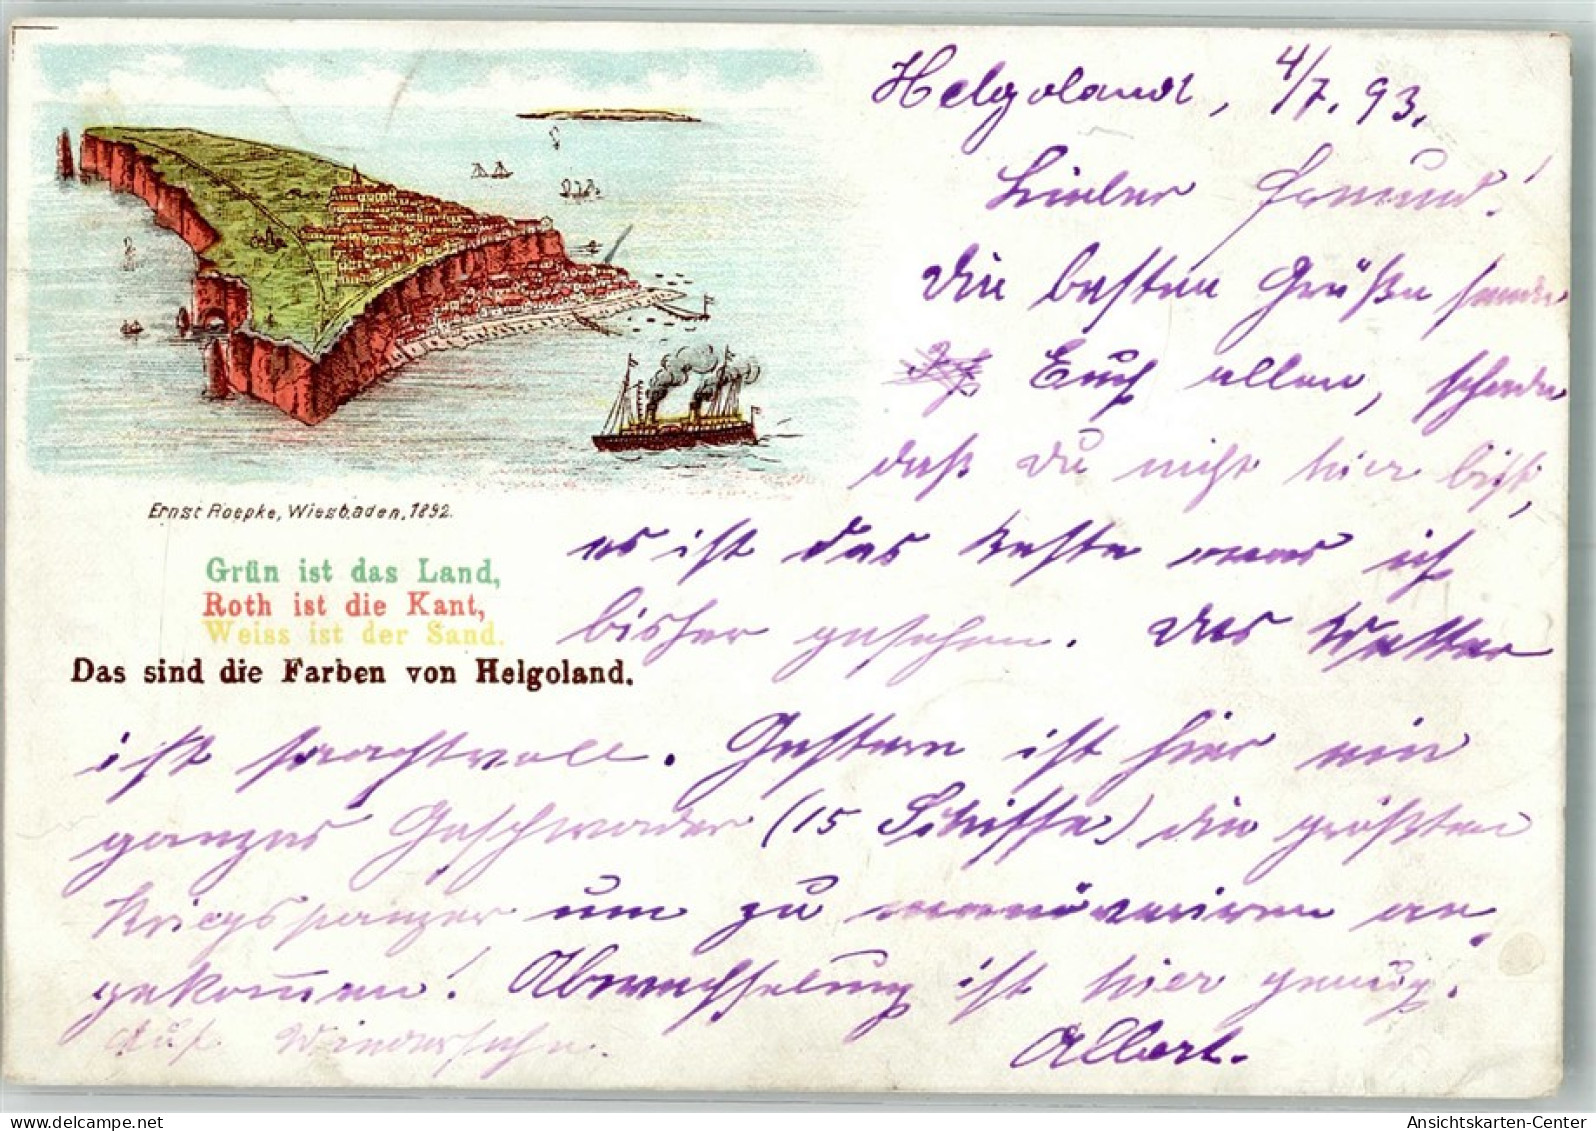 Helgoland, 4/7. 93.
Lieber Freund!
Die besten Grüße sende
Euch allen, schade
daß Du nicht hier bist,
es ist das beste was ich
bisher gesehen. Das Wetter
ist prachtvoll. Gestern ist hier ein
ganzes Geschwader (15 Schiffe) die größten
Kriegspanzer um zu manöveriren an-
gekommen! Abwechselung ist hier genug.
Auf Wiedersehn.
Albert.
Ernst Roepke, Wiesbaden, 1892.
Grün ist das Land,
Roth ist die Kant,
Weiss ist der Sand.
Das sind die Farben von Helgoland.
Ansichtskarten-Center